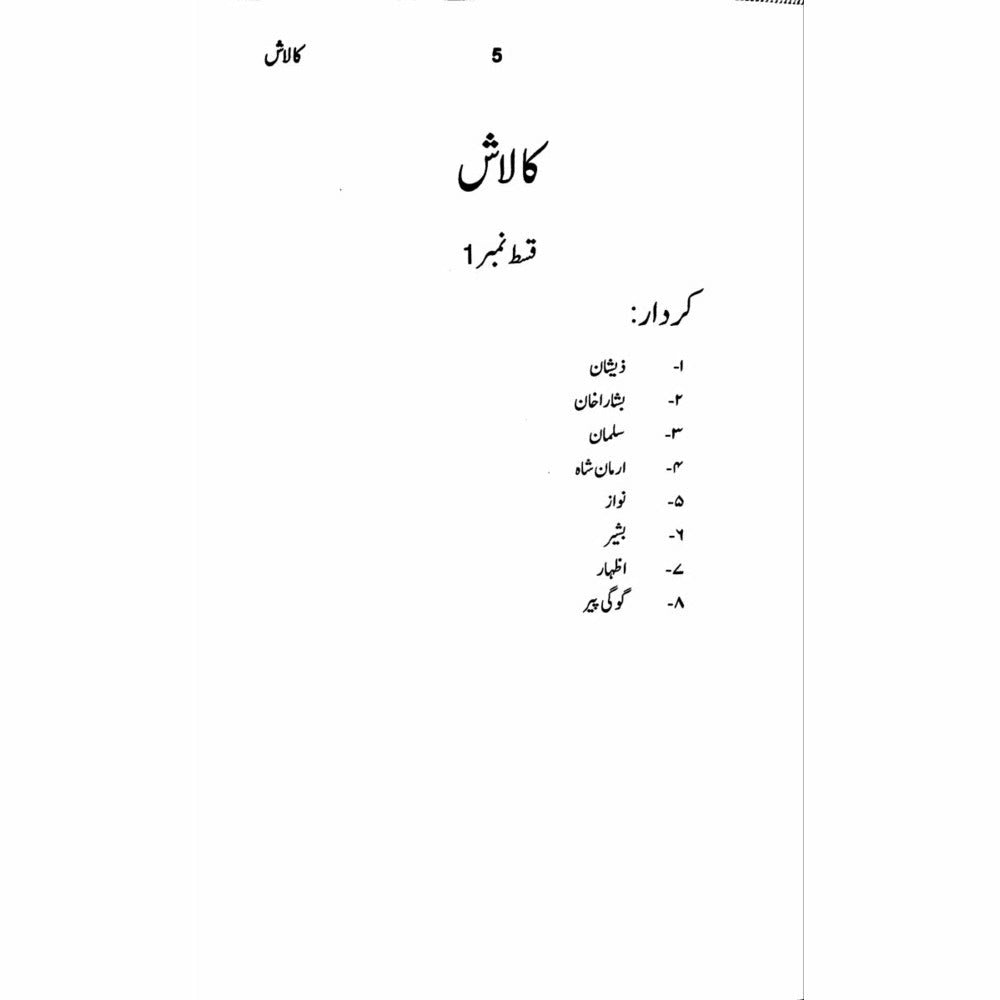 کالاش 5
کالاش
قسط نمبر 1
کردار:
۱- ذیشان
۲- بشارا خان
۳- سلمان
۴- ارمان شاہ
۵- نواز
۶- بشیر
۷- اظہار
۸- گوگی پیر